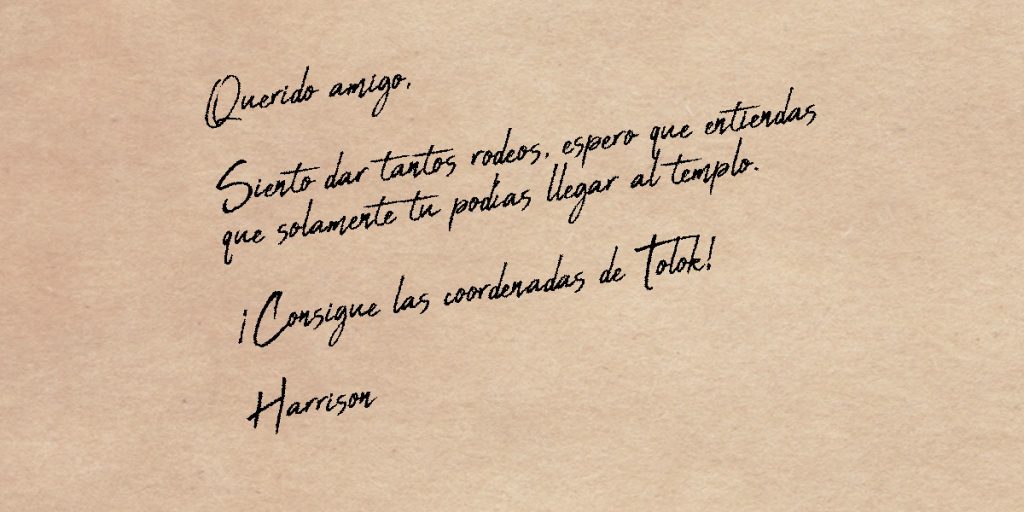 Querido amigo,
Siento dar tantos rodeos, espero que entiendas
que solamente tu podías llegar al templo.
¡Consigue las coordenadas de Tolok!
Harrison